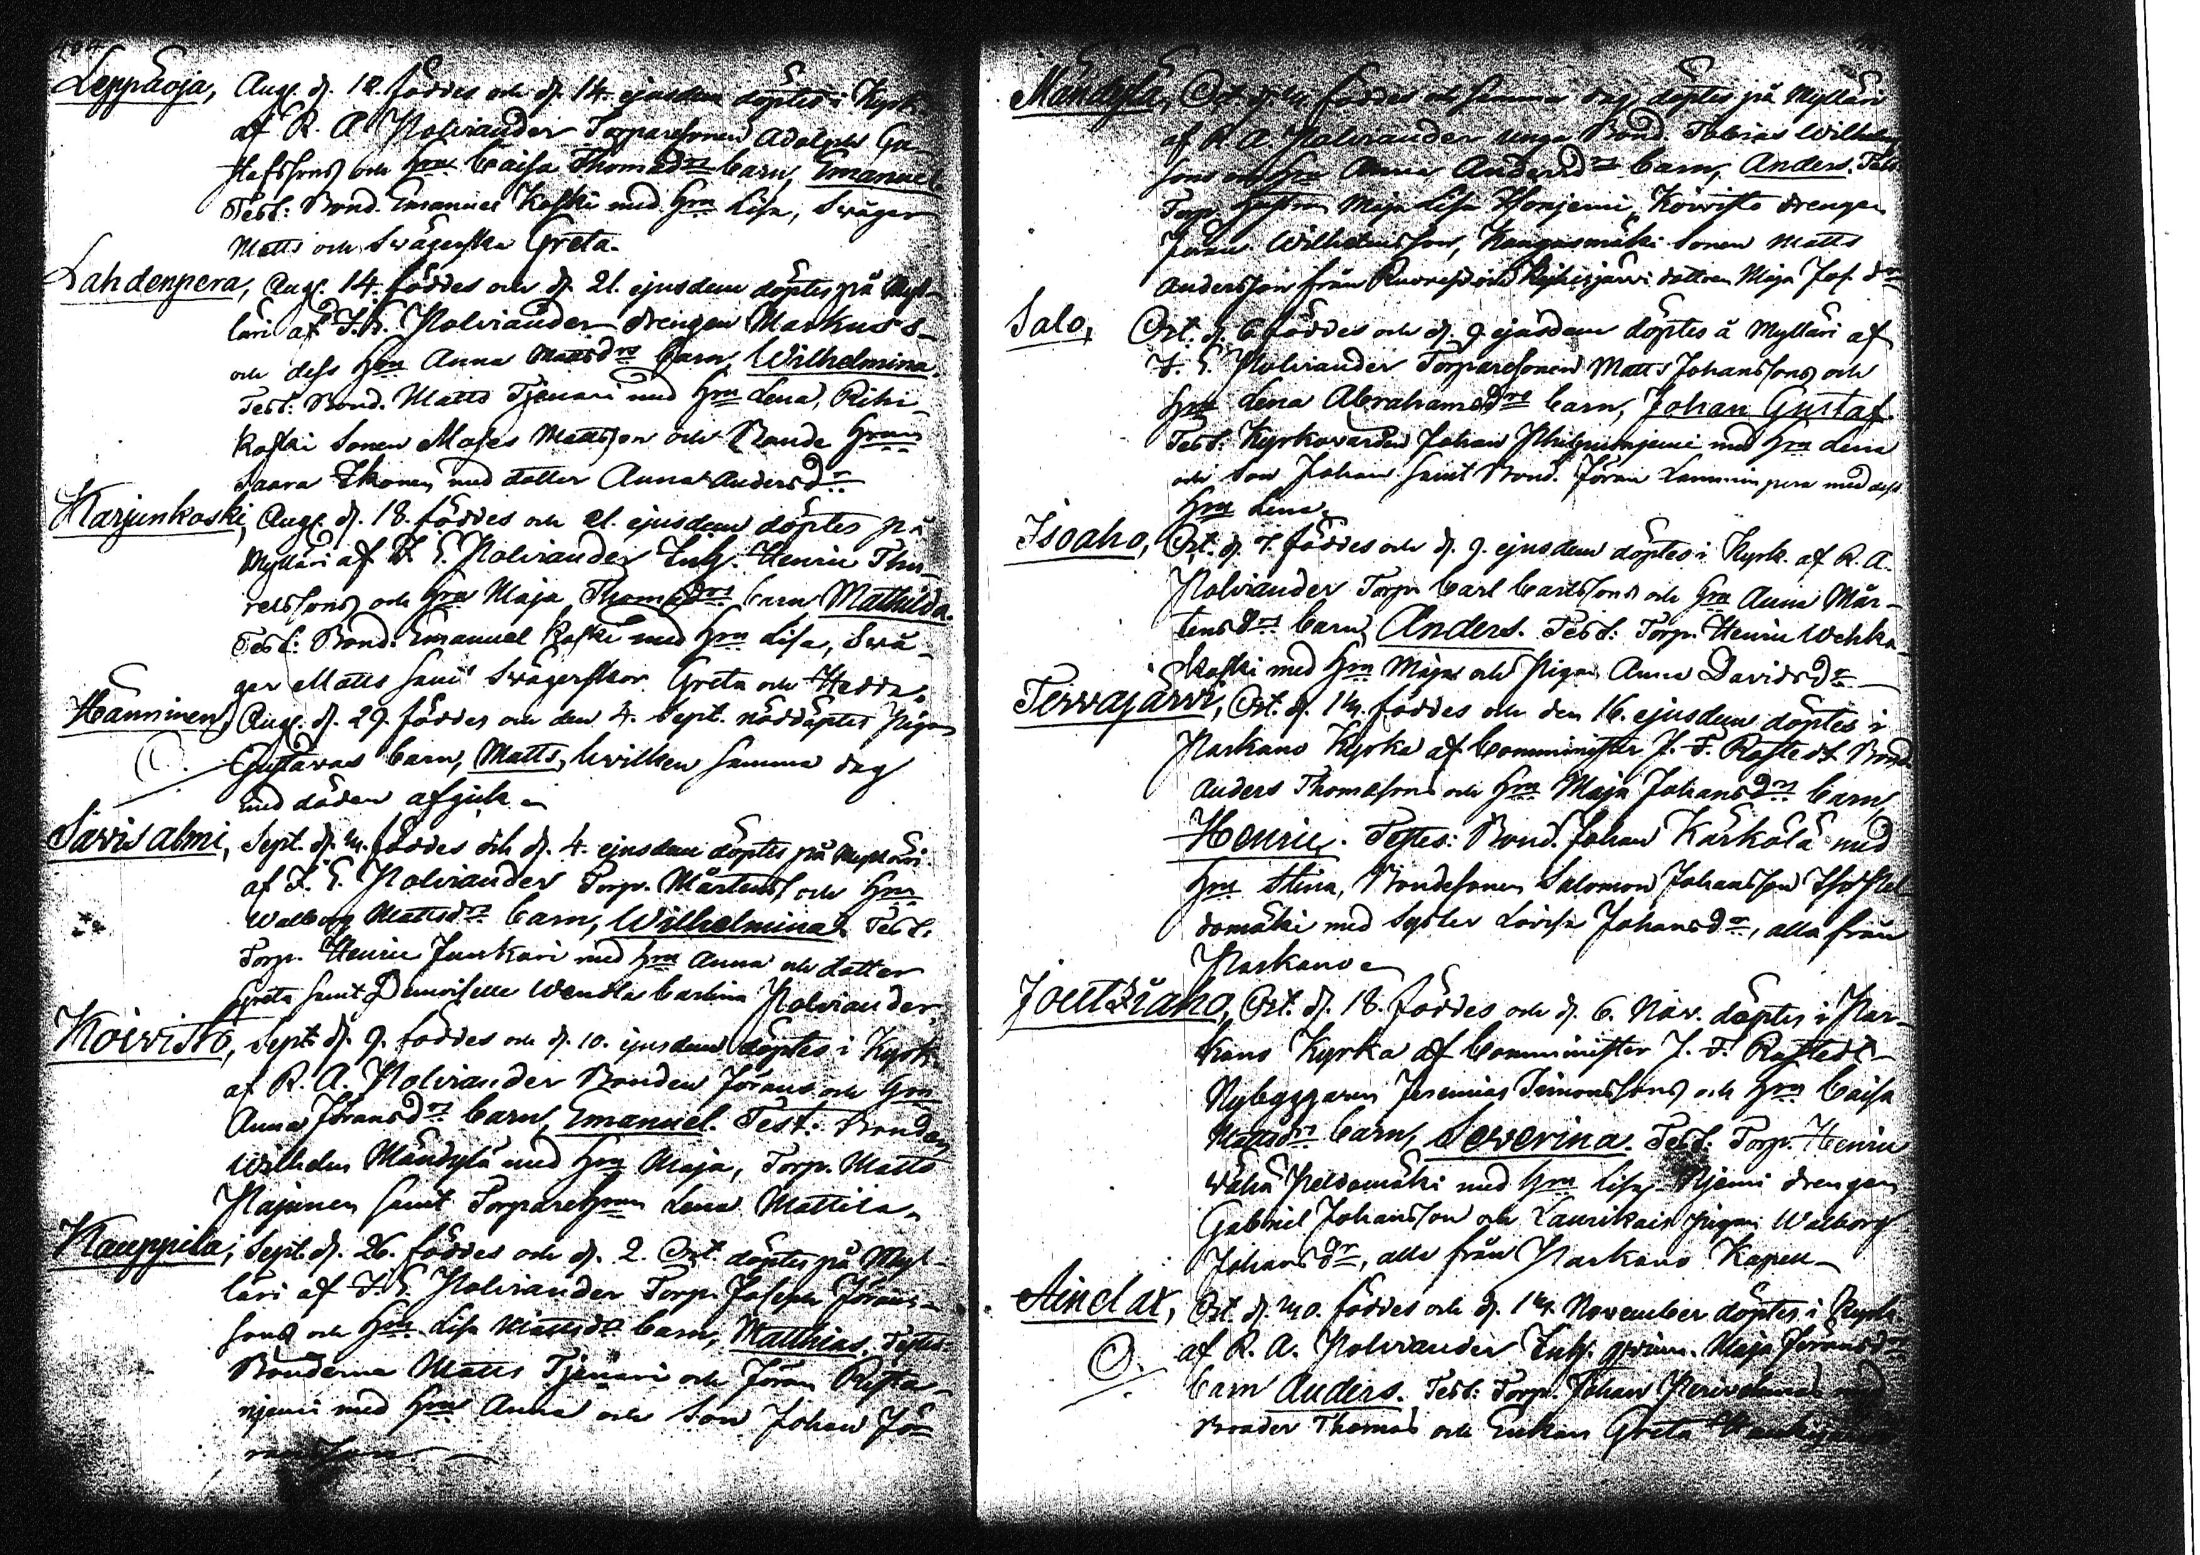 Leppäoja, Aug. d. 12. föddes och d. 14. ejusdem döptes i Kyrk.
af R. A. Polviander Torparesonen Adolph Gu-
stafssons och hru Caisa Thomasdrs barn, Emanuel
Test: Bond. Emanuel Koski med hru Lisa, Swåger
Matts och Swägerska Greta.
Lahdenpera, Aug. 14. föddes och d. 21. ejusdem döptes på Myl-
läri af F. E. Polviander drengen Markus s-
och dess hru Anna Mattsdrs barn, Wilhelmina.
Test: Bond. Matts Tjenari med hru Lena, Riihi-
koski sonen Moses Mattsson och Bonde hrun
Saara Ikonen med dotter Anna Andersdr
Karjunkoski, Aug. d. 18. föddes och 21. ejusdem döptes på
Mylläri af F. E. Polviander Inh. Henric Thu-
relssons och hru Maja Thomasdrs barn Mathilda.
Test: Bond. Emanuel Koski med hru Lisa, Swå-
ger Matts samt Swägerskor Greta och Hedda.
Hänninen, Aug. d. 29. föddes och den 4. Sept. nöddöptes Pigan
Gustavas barn, Matts, hvilken samma dag
med döden afgick
Savisalmi, Sept. d. 2. föddes och d. 4. ejusdem döptes på Mylläri
af F. E. Polviander Torp. Mårtens och hru
Walborg Mattsdrs barn, Wilhelmina. Test.
Torp. Henric Junkari med hru Anna och dotter
Greta samt Demoiselle Wendla Carolina Polviander,
Koivisto, Sept. d. 9. föddes och d. 10. ejusdem döptes i Kyrk.
af R. A. Polviander Bonden Jörans och hru
Anna Jöransdrs barn, Emanuel. Test: Bonden
Wilhelm Mändylä med hru Maja, Torp. Matts
Pajunen samt Torparehrun Lena Mattila
Kauppila, Sept. d. 26. föddes och d. 2. Oct. döptes på Myl-
läri af F. E. Polviander Torp. Joseph Jörans-
sons och hru Lisa Mattsdrs barn, Matthias. Testes
Bönderna Matts Tjenari och Jöran Rista-
njemi med hru Anna och Son Johan Jö-
ransson
Mändylä, Oct. d. föddes och samma dag döptes på Mylläri
af R. A. Polviander unga Bond. Tobias Wilhelms-
sons och hru Anna Andersdrs barn, Anders. Test
Torp. Maja Lisa Honjemi, Koivisto drengen
Jöran Wilhelmsson, Kangasmäki sonen Matts
Andersson från och Kyhisjärvi dottren Maja Jos.dr
Salo, Oct. d. 6 föddes och d. 9 ejusdem döptes å Mylläri af
F. E. Polviander Torparesonen Matts Johanssons och
hru Lena Abrahamsdrs barn, Johan Gustaf
Test: Kyrkovärden Johan med hru Lena
och Son Johan samt Bond. Jöran Lamminpera med dess
hru Lena
Isoaho, Oct. d. 7. föddes och d. 9. ejusdem döptes i Kyrk. af R. A.
Polviander Torp. Carl Carlssons och hru Anna Mår-
tensdrs barn, Anders. Test: Torp. Henric Wehka-
koski med hru Maja och Pigan Anna Davidsdr
Tervajärvi, Oct. d. 12. föddes och den 16. ejusdem döptes i
Parkano Kyrka af Comminister J. F. Rostedt Bond
Anders Thomasons och hru Maja Johansdrs barn,
Henric. Testes: Bond. Johan Kärkölä med
hru Stina, Bondesonen Salomon Johansson Iso Pel-
domäki med Syster Lovisa Johansdr, alla från
Parkano
Joutziaho, Oct. d. 18. föddes och d. 6. Nov. döptes i Par-
kano Kyrka af Comminister J. F. Rostedt
Nybyggaren Jeremias Simonssons och hru Caisa
Mattsdrs barn, Severina. Test: Torp. Henric
Wähä Peldomäki med hru Lisa, Njemi drengen
Gabriel Johansson och Laurikais pigan Walborg
Johansdr, alla från Parkano Kapell
Ainelax, Oct. d. 20. föddes och d. 12. November döptes i Kyrk.
af R. A. Polviander Inh. qvinn. Maja Jöransdrs
barn Anders. Test: Torp. Johan med
Broder Thomas och Enkan Greta